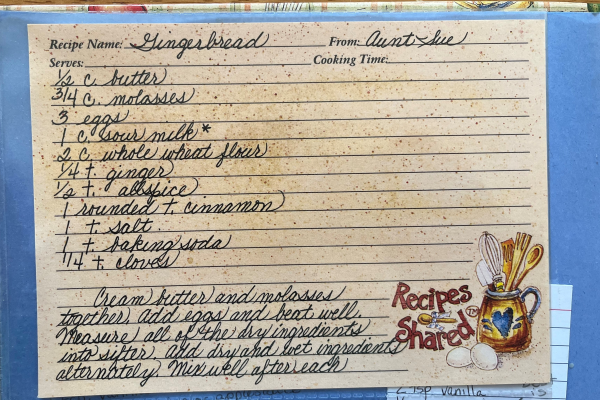 Recipe Name: Gingerbread From: Aunt Sue
Serves: Cooking Time:
1/2 c. butter
3/4 c. molasses
3 eggs
1 c. sour milk *
2 c. whole wheat flour
1/4 t. ginger
1/2 t. allspice
1 rounded t. cinnamon
1 t. salt.
1 t. baking soda
1/4 t. cloves
Cream butter and molasses
together. Add eggs and beat well.
Measure all of the dry ingredients
into sifter. Add dry and wet ingredients
alternately. Mix well after each
Recipes
Shared™
vanilla